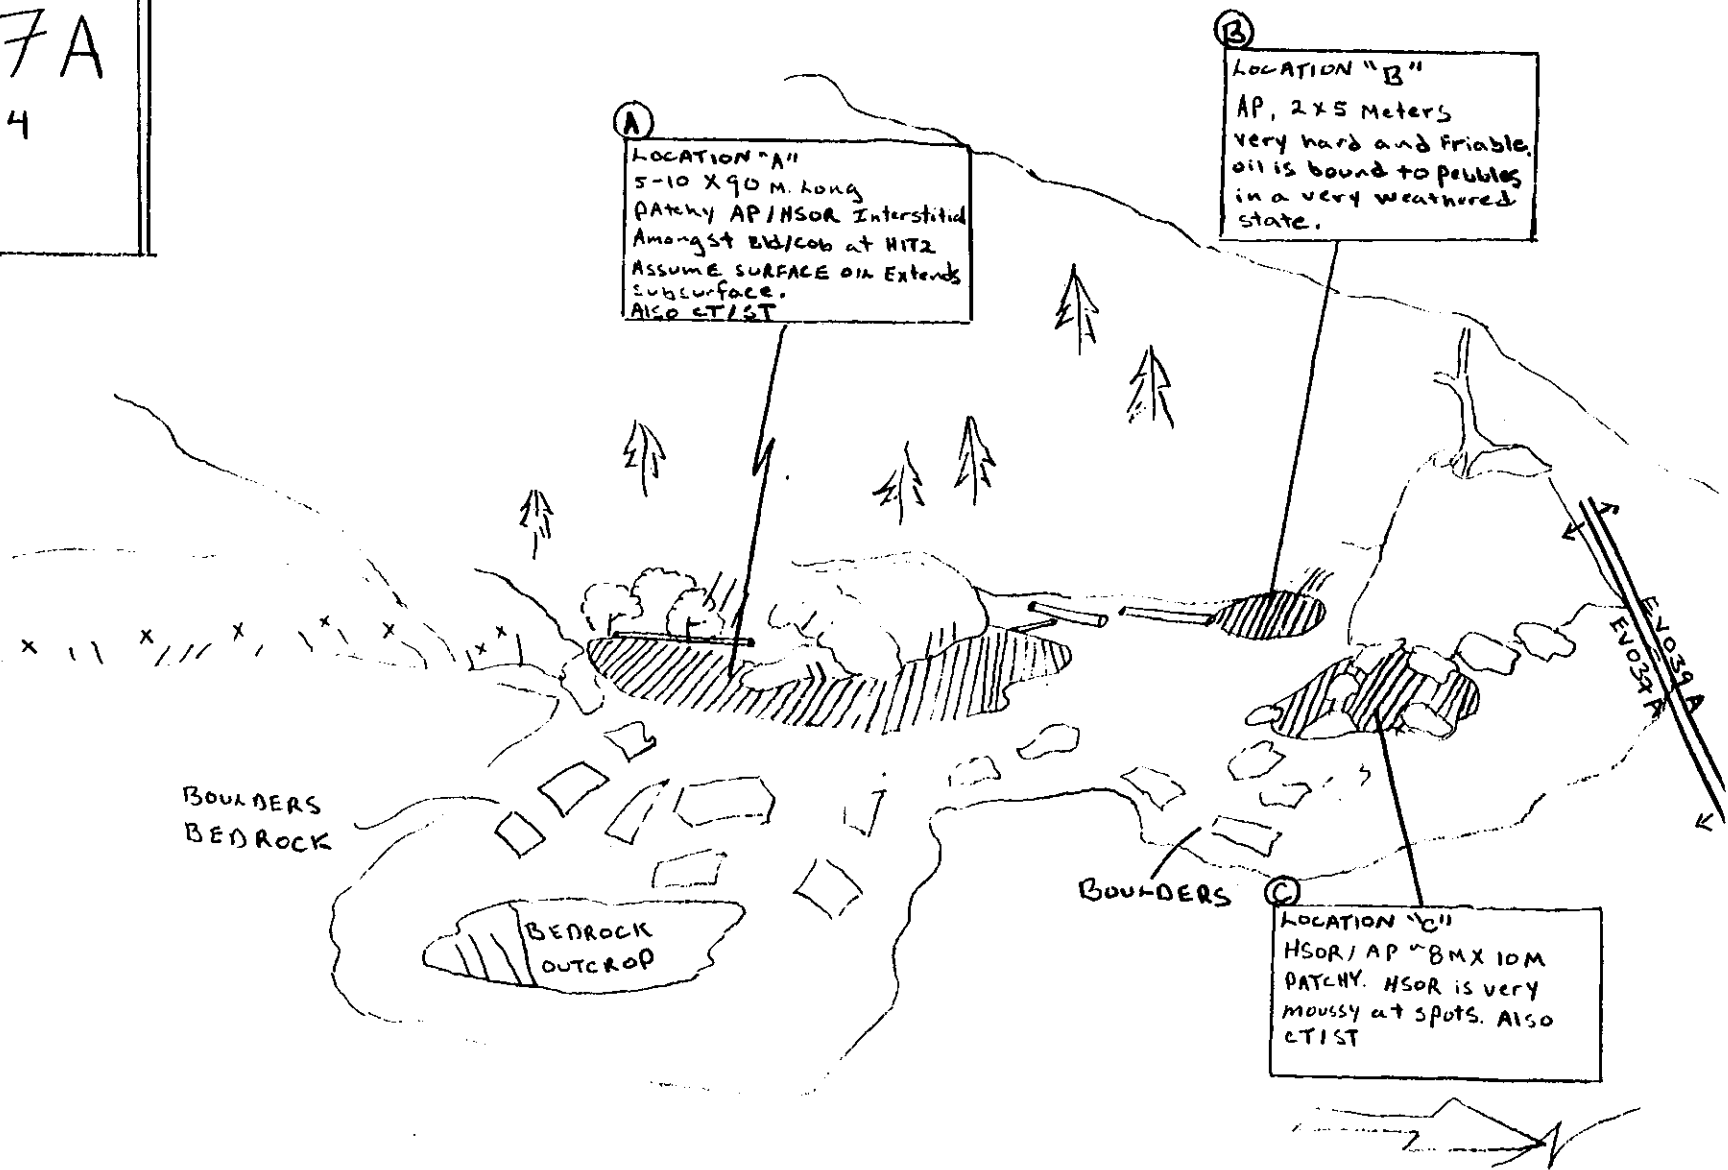 7A
4
A
LOCATION "A"
5-10 X 90 M. Long
PAtchy AP/HSOR Interstitial
Amongst Bld/Cob at HITZ
Assume SURFACE OIL Extends
subsurface.
Also CT/ST
B
LOCATION "B"
AP, 2 x 5 Meters
very hard and Friable.
oil is bound to pebbles
in a very weathered
state.
EVO39A
EVO39A
BOULDERS
BEDROCK
BEDROCK
OUTCROP
BOULDERS
C
LOCATION "C"
HSOR/AP ~8M X 10M
PATCHY. HSOR is very
moussy at spots. Also
CT/ST
N